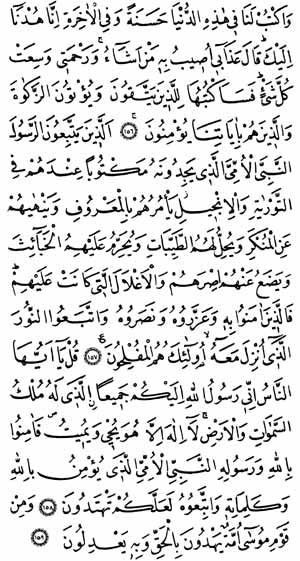 وَاكْتُبْ لَنَا فِي هٰذِهِ الدُّنْيَا حَسَنَةً وَفِي الْاٰخِرَةِ اِنَّا هُدْنَٓا
اِلَيْكَۜ قَالَ عَذَاب۪ٓي اُص۪يبُ بِه۪ مَنْ اَشَٓاءُۚ وَرَحْمَت۪ي وَسِعَتْ
كُلَّ شَيْءٍۜ فَسَاَكْتُبُهَا لِلَّذ۪ينَ يَتَّقُونَ وَيُؤْتُونَ الزَّكٰوةَ
وَالَّذ۪ينَ هُمْ بِاٰيَاتِنَا يُؤْمِنُونَۚ ﴿١٥٦﴾ اَلَّذ۪ينَ يَتَّبِعُونَ الرَّسُولَ
النَّبِيَّ الْاُمِّيَّ الَّذ۪ي يَجِدُونَهُ مَكْتُوبًا عِنْدَهُمْ فِي
التَّوْرٰيةِ وَالْاِنْج۪يلِۘ يَأْمُرُهُمْ بِالْمَعْرُوفِ وَيَنْهٰيهُمْ
عَنِ الْمُنْكَرِ وَيُحِلُّ لَهُمُ الطَّيِّبَاتِ وَيُحَرِّمُ عَلَيْهِمُ الْخَبَٓائِثَ
وَيَضَعُ عَنْهُمْ اِصْرَهُمْ وَالْاَغْلَالَ الَّت۪ي كَانَتْ عَلَيْهِمْۜ
فَالَّذ۪ينَ اٰمَنُوا بِه۪ وَعَزَّرُوهُ وَنَصَرُوهُ وَاتَّبَعُوا النُّورَ
الَّذ۪ٓي اُنْزِلَ مَعَهُٓۙ اُو۬لٰٓئِكَ هُمُ الْمُفْلِحُونَ۟ ﴿١٥٧﴾ قُلْ يَٓا اَيُّهَا
النَّاسُ اِنّ۪ي رَسُولُ اللّٰهِ اِلَيْكُمْ جَم۪يعًاۨ الَّذ۪ي لَهُ مُلْكُ
السَّمٰوَاتِ وَالْاَرْضِۚ لَٓا اِلٰهَ اِلَّا هُوَ يُحْي۪ وَيُم۪يتُۖ فَاٰمِنُوا
بِاللّٰهِ وَرَسُولِهِ النَّبِيِّ الْاُمِّيِّ الَّذ۪ي يُؤْمِنُ بِاللّٰهِ
وَكَلِمَاتِه۪ وَاتَّبِعُوهُ لَعَلَّكُمْ تَهْتَدُونَ ﴿١٥٨﴾ وَمِنْ
قَوْمِ مُوسٰٓى اُمَّةٌ يَهْدُونَ بِالْحَقِّ وَبِه۪ يَعْدِلُونَ ﴿١٥٩﴾